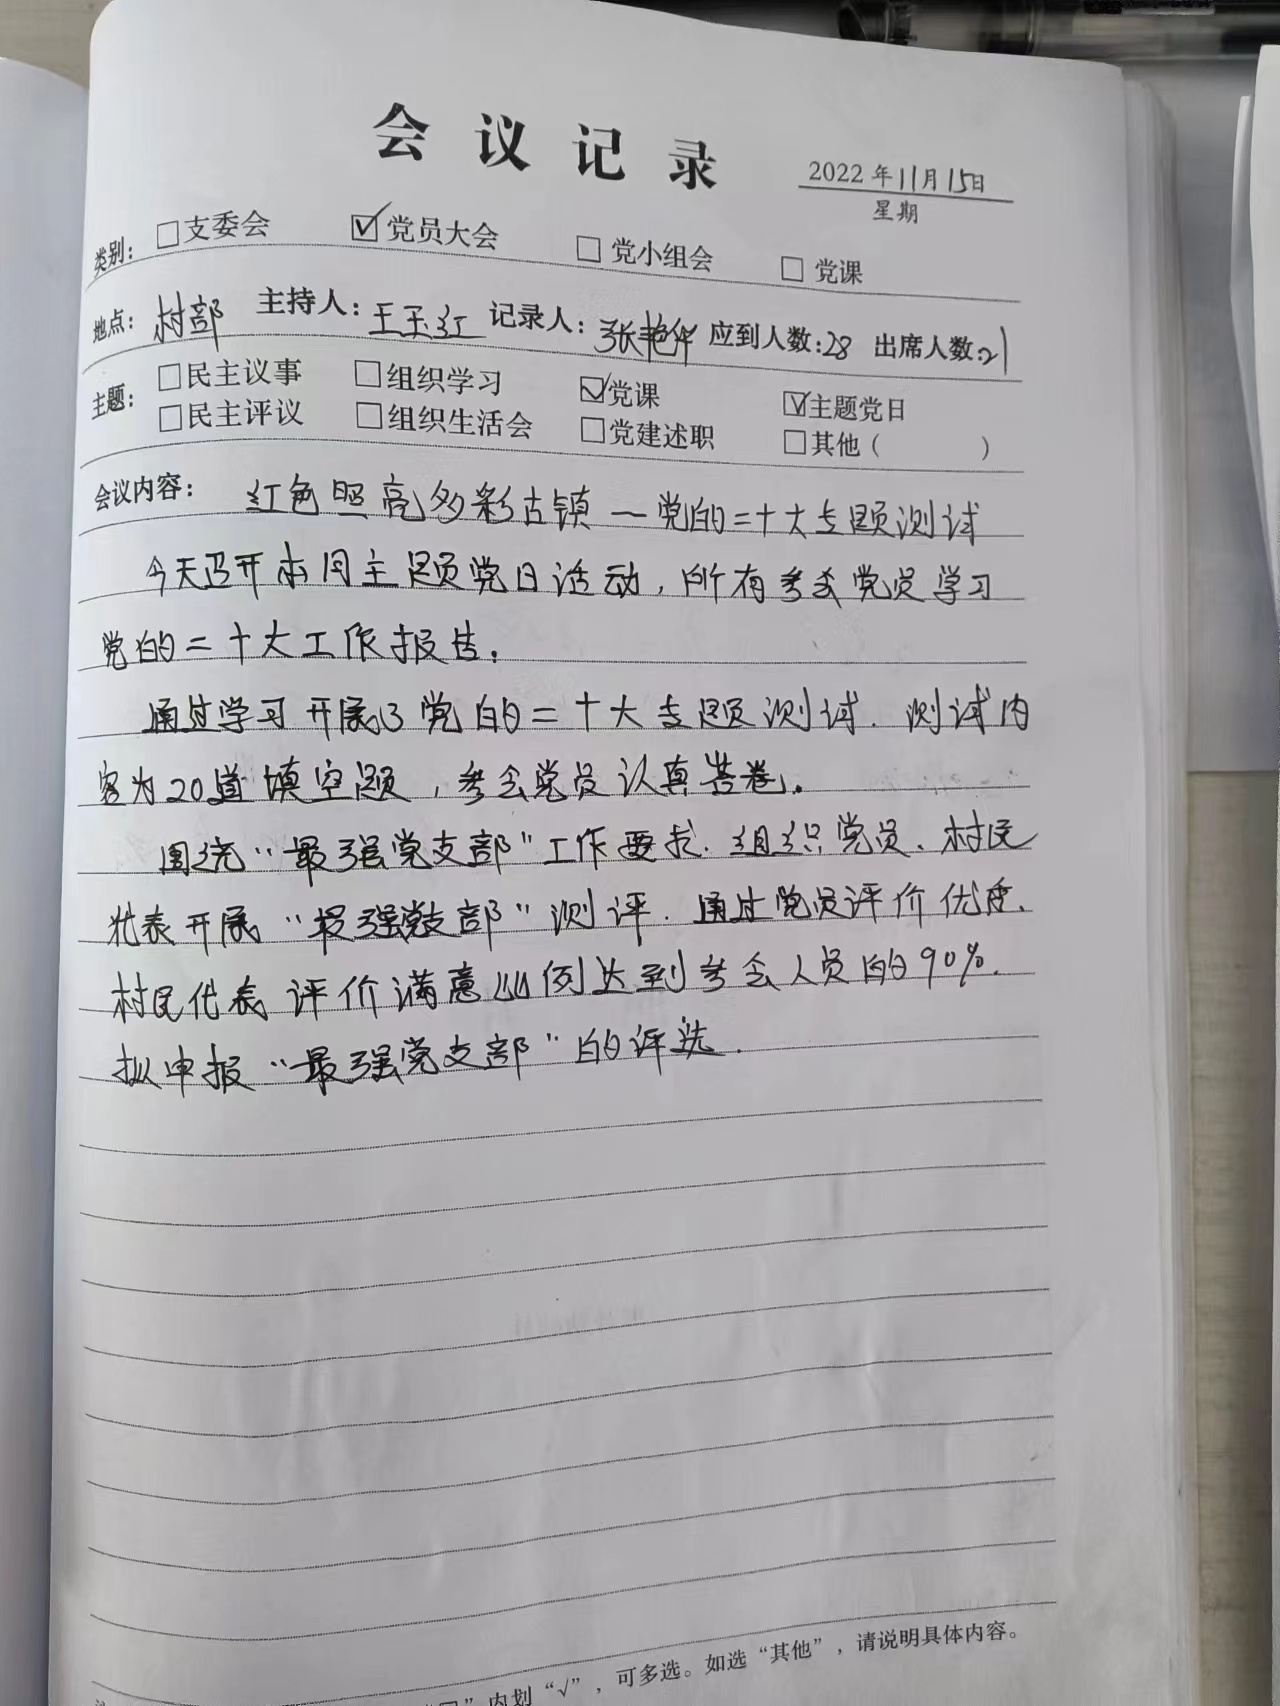 会议记录
2022年11月15日
星期
类别：□支委会 ☑党员大会 □党小组会 □党课
地点：村部 主持人：王玉红 记录人：张艳华 应到人数：28 出席人数：21
主题：□民主议事 □组织学习 ☑党课 ☑主题党日
□民主评议 □组织生活会 □党建述职 □其他（ ）
会议内容：红色照亮多彩古镇一党的二十大专题测试
今天召开本月主题党日活动，所有参会党员学习
党的二十大工作报告。
通过学习开展了党的二十大专题测试.测试内
容为20道填空题，参会党员认真答卷。
围绕“最强党支部”工作要求.组织党员、村民
代表开展“最强党支部”测评.通过党员评价优秀、
村民代表评价满意比例达到参会人员的90%.
拟申报“最强党支部”的评选.
”内划“√”，可多选。如选“其他”，请说明具体内容。